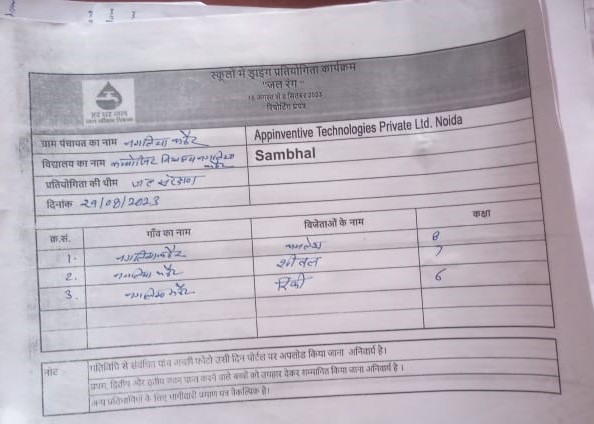 स्कूलों में ड्राइंग प्रतियोगिता कार्यक्रम
"जल रंग"
16 अगस्त से 8 सितंबर 2023
रिपोर्टिंग प्रपत्र
हर घर जल
जल जीवन मिशन
ग्राम पंचायत का नाम नगलिया कठेर Appinventive Technologies Private Ltd. Noida
विद्यालय का नाम कम्पोजिट विद्यालय नगलिया कठेर Sambhal
प्रतियोगिता की थीम जल संरक्षण
दिनांक 29/08/2023
क्र.सं. गाँव का नाम विजेताओं के नाम कक्षा
1. नगलिया कठेर कमलेश 8
2. नगलिया कठेर 7
3. नगलिया कठेर रिंकी 6
नोट
गतिविधि से संबंधित पांच अच्छी फोटो उसी दिन पोर्टल पर अपलोड किया जाना अनिवार्य है।
प्रथम, द्वितीय और तृतीय स्थान प्राप्त करने वाले बच्चों को उपहार देकर सम्मानित किया जाना अनिवार्य है।
अन्य प्रतिभागियों के लिए भागीदारी प्रमाण पत्र वैकल्पिक है।